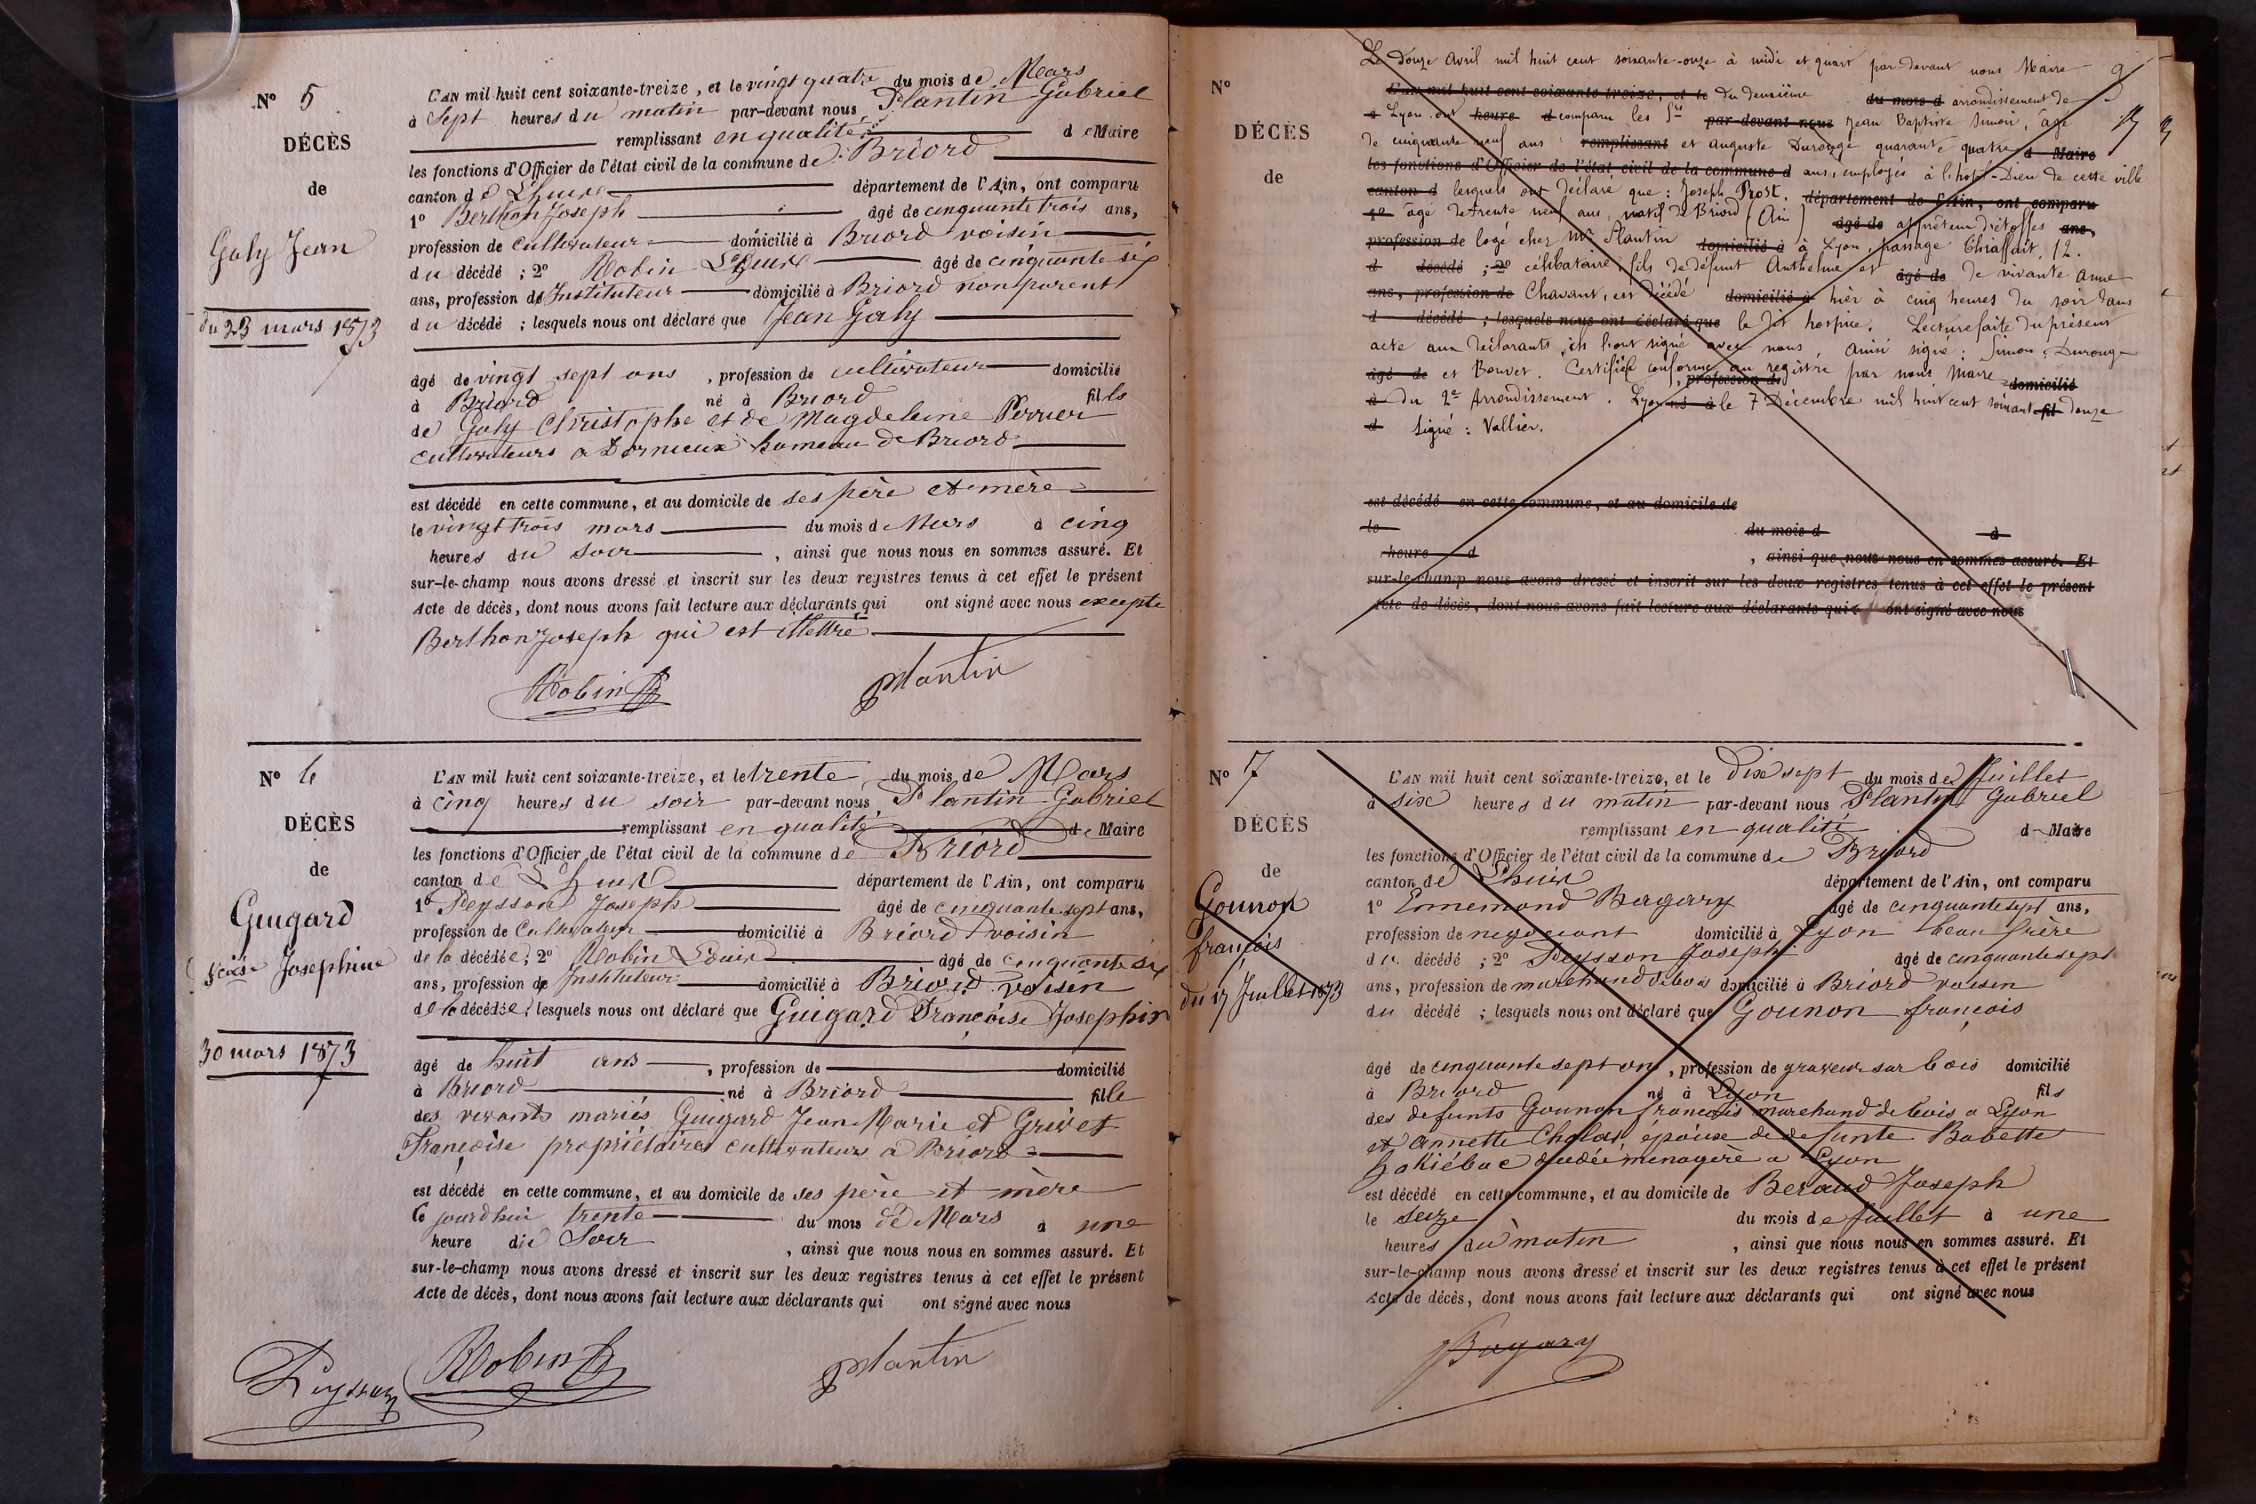 Nº 5
DÉCÈS
de
Galy Jean
du 23 mars 1873
L'AN mil huit cent soixante-treize, et le vingt quatre du mois de Mars
à Sept heures du matin par-devant nous Plantin Gabriel
remplissant en qualité de Maire
les fonctions d'Officier de l'état civil de la commune de Briord
canton de Lhuis département de l'Ain, ont comparu
1º Berthon Joseph âgé de cinquante trois ans,
profession de cultivateur domicilié à Briord voisin
du décédé ; 2º Robin Louis âgé de cinquante six
ans, profession de Instituteur domicilié à Briord non parent
du décédé ; lesquels nous ont déclaré que Jean Galy
âgé de vingt sept ans, profession de cultivateur domicilié
à Briord né à Briord fils
de Galy Christophe et de Magdeleine Perrier
cultivateurs à Dornieux hameau de Briord
est décédé en cette commune, et au domicile de ses père et mère
le vingt trois mars du mois de Mars à cinq
heures du soir, ainsi que nous nous en sommes assuré. Et
sur-le-champ nous avons dressé et inscrit sur les deux registres tenus à cet effet le présent
Acte de décès, dont nous avons fait lecture aux déclarants qui ont signé avec nous excepte
Berthon Joseph qui est illettré
Robin Plantin
Nº 6
DÉCÈS
de
Guigard
Josephine
30 mars 1873
L'AN mil huit cent soixante-treize, et le trente du mois de Mars
à cinq heures du soir par-devant nous Plantin Gabriel
remplissant en qualité de Maire
les fonctions d'Officier de l'état civil de la commune de Briord
canton de Lhuis département de l'Ain, ont comparu
1º Peysson Joseph âgé de cinquante sept ans,
profession de Cultivateur domicilié à Briord voisin
de la décédée ; 2º Robin Louis âgé de cinquante six
ans, profession de Instituteur domicilié à Briord voisin
de la décédée ; lesquels nous ont déclaré que Guigard Françoise Josephin
âgé de huit ans, profession de domicilié
à Briord né à Briord fille
des vivants mariés Guigard Jean Marie et Grivet
Françoise propriétaires cultivateurs à Briord
est décédé en cette commune, et au domicile de ses père et mère
le jourdhui trente du mois de Mars à une
heure du Soir, ainsi que nous nous en sommes assuré. Et
sur-le-champ nous avons dressé et inscrit sur les deux registres tenus à cet effet le présent
Acte de décès, dont nous avons fait lecture aux déclarants qui ont signé avec nous
Peysson Robin Plantin
Nº
DÉCÈS
de
Le douze Avril mil huit cent soixante-onze à midi et quart par-devant nous Maire
L'AN mil huit cent soixante-treize, et le du deuxième du mois d arrondissement de
à Lyon ont heure d comparu les Srs par-devant nous Jean Baptiste Simon, âgé
de cinquante neuf ans remplissant et Auguste Durouge quarante quatre d Maire
les fonctions d'Officier de l'état civil de la commune d ans, employés à l'hôtel-Dieu de cette ville
canton d lesquels ont déclaré que : Joseph Prost, département de l'Ain, ont comparu
1º âgé de trente neuf ans, natif de Briord (Ain) âgé de apprêteur d'étoffes ans,
profession de logé chez Mr Plantin domicilié à à Lyon, passage 12.
d décédé ; 2º célibataire, fils de défunt Anthelme et âgé de de vivante Anne
ans, profession de Chavant, est décédé domicilié à hier à cinq heures du soir dans
d décédé ; lesquels nous ont déclaré que le dit hospice. Lecture faite du présent
acte aux déclarants, ils l'ont signé avec nous. Ainsi signé : Simon, Durouge
âgé de et Bouvet. Certifié conforme au registre profession de par nous Maire domicilié
à du 2e Arrondissement. Lyon né à le 7 Décembre mil huit cent soixante fil douze
d Signé : Vallier.
est décédé en cette commune, et au domicile de
le du mois d à
heure d, ainsi que nous nous en sommes assuré. Et
sur-le-champ nous avons dressé et inscrit sur les deux registres tenus à cet effet le présent
Acte de décès, dont nous avons fait lecture aux déclarants qui ont signé avec nous
Nº 7
DÉCÈS
de
Gounon
françois
du 17 Juillet 1873
L'AN mil huit cent soixante-treize, et le Dix sept du mois de Juillet
à six heures du matin par-devant nous Plantin Gabriel
remplissant en qualité d Maire
les fonctions d'Officier de l'état civil de la commune de Briord
canton de Lhuis département de l'Ain, ont comparu
1º Ennemond Bagary âgé de cinquante sept ans,
profession de negociant domicilié à Lyon beau frère
du décédé ; 2º Peysson Joseph âgé de cinquante sept
ans, profession de marchand de bois domicilié à Briord voisin
du décédé ; lesquels nous ont déclaré que Gounon françois
âgé de cinquante sept ans, profession de graveur sur bois domicilié
à Briord né à Lyon fils
des defunts Gounon francois marchand de bois a Lyon
et annette époux de defunte Babette
menagère a Lyon
est décédé en cette commune, et au domicile de Beraud Joseph
le seize du mois de Juillet à une
heures du matin, ainsi que nous nous en sommes assuré. Et
sur-le-champ nous avons dressé et inscrit sur les deux registres tenus à cet effet le présent
Acte de décès, dont nous avons fait lecture aux déclarants qui ont signé avec nous
Bagary